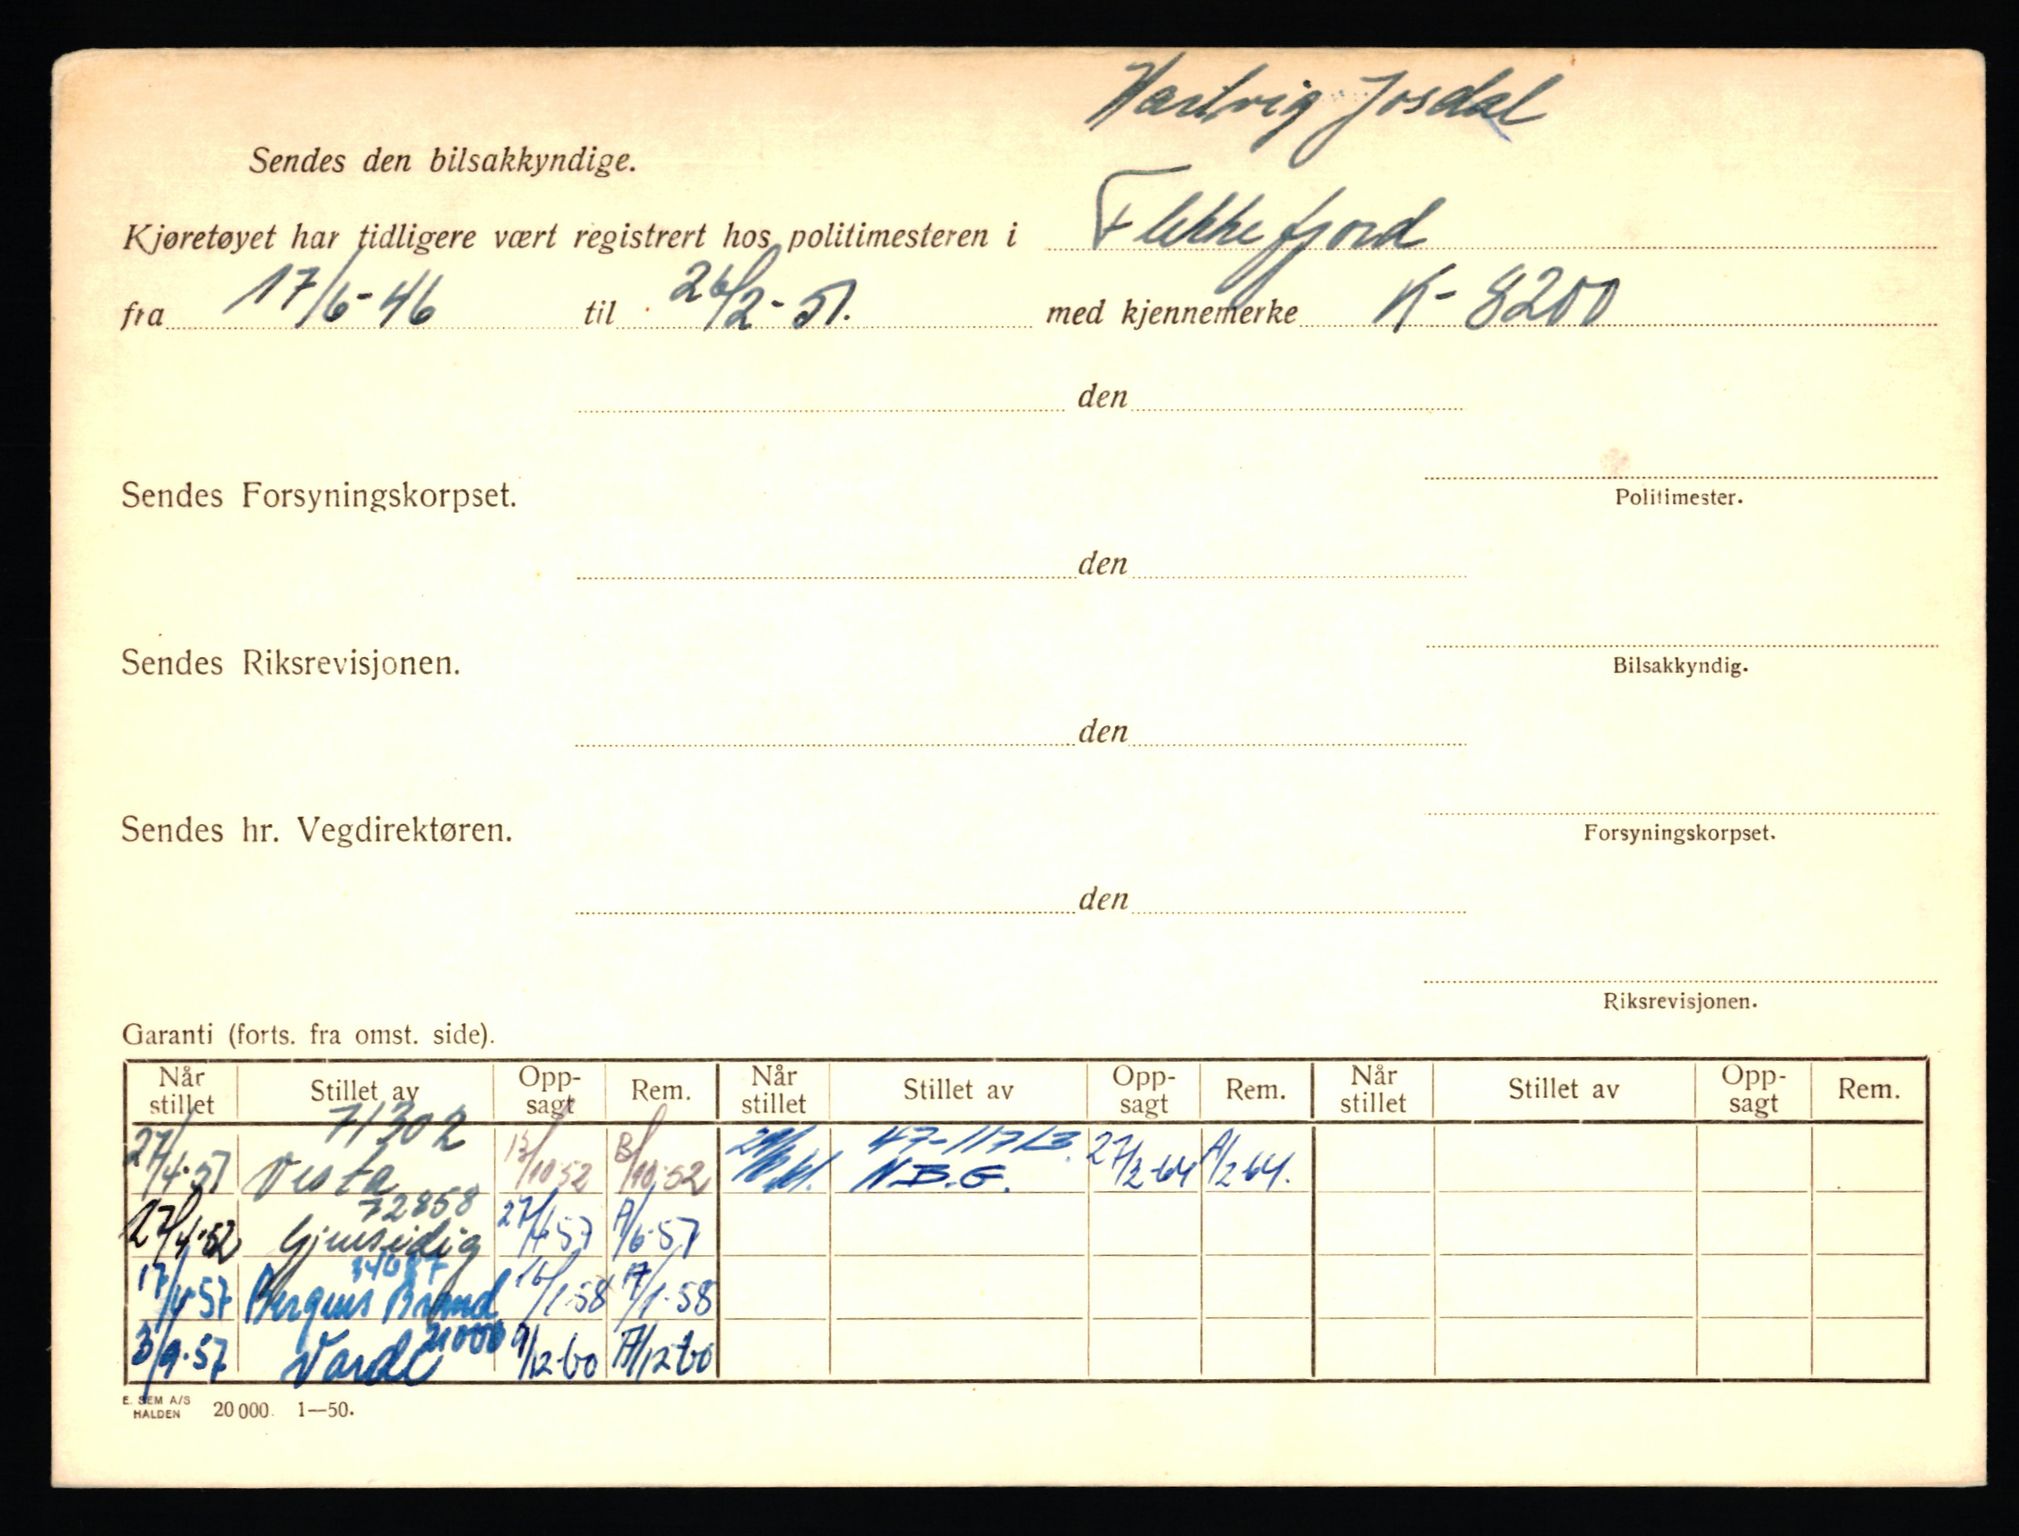 Hartvig Josdal
Sendes den bilsakkyndige.
Kjøretøyet har tidligere vært registrert hos politimesteren i Flekkefjord
fra 17/6-46 til 26/2-51. med kjennemerke K-8200
den
Sendes Forsyningskorpset.
Politimester.
den
Sendes Riksrevisjonen.
Bilsakkyndig.
den
Sendes hr. Vegdirektøren.
Forsyningskorpset.
den
Riksrevisjonen.
Garanti (forts. fra omst. side).
Når stillet Stillet av Opp-sagt Rem. Når stillet Stillet av Opp-sagt Rem. Når stillet Stillet av Opp-sagt Rem.
71302
27/4-51 Vesta 13/10 52 /10-52 47-11713. N.B.G. 27/2-64 A/2-64.
72858
17/4-52 Gjensidig 27/4-57 A/6-57
17/4-57 Bergens Brand 16/1-58 17/1-58
21000
3/9-57 Varde 9/12-60 A/12-60
E. SEM A/S
HALDEN 20 000. 1—50.